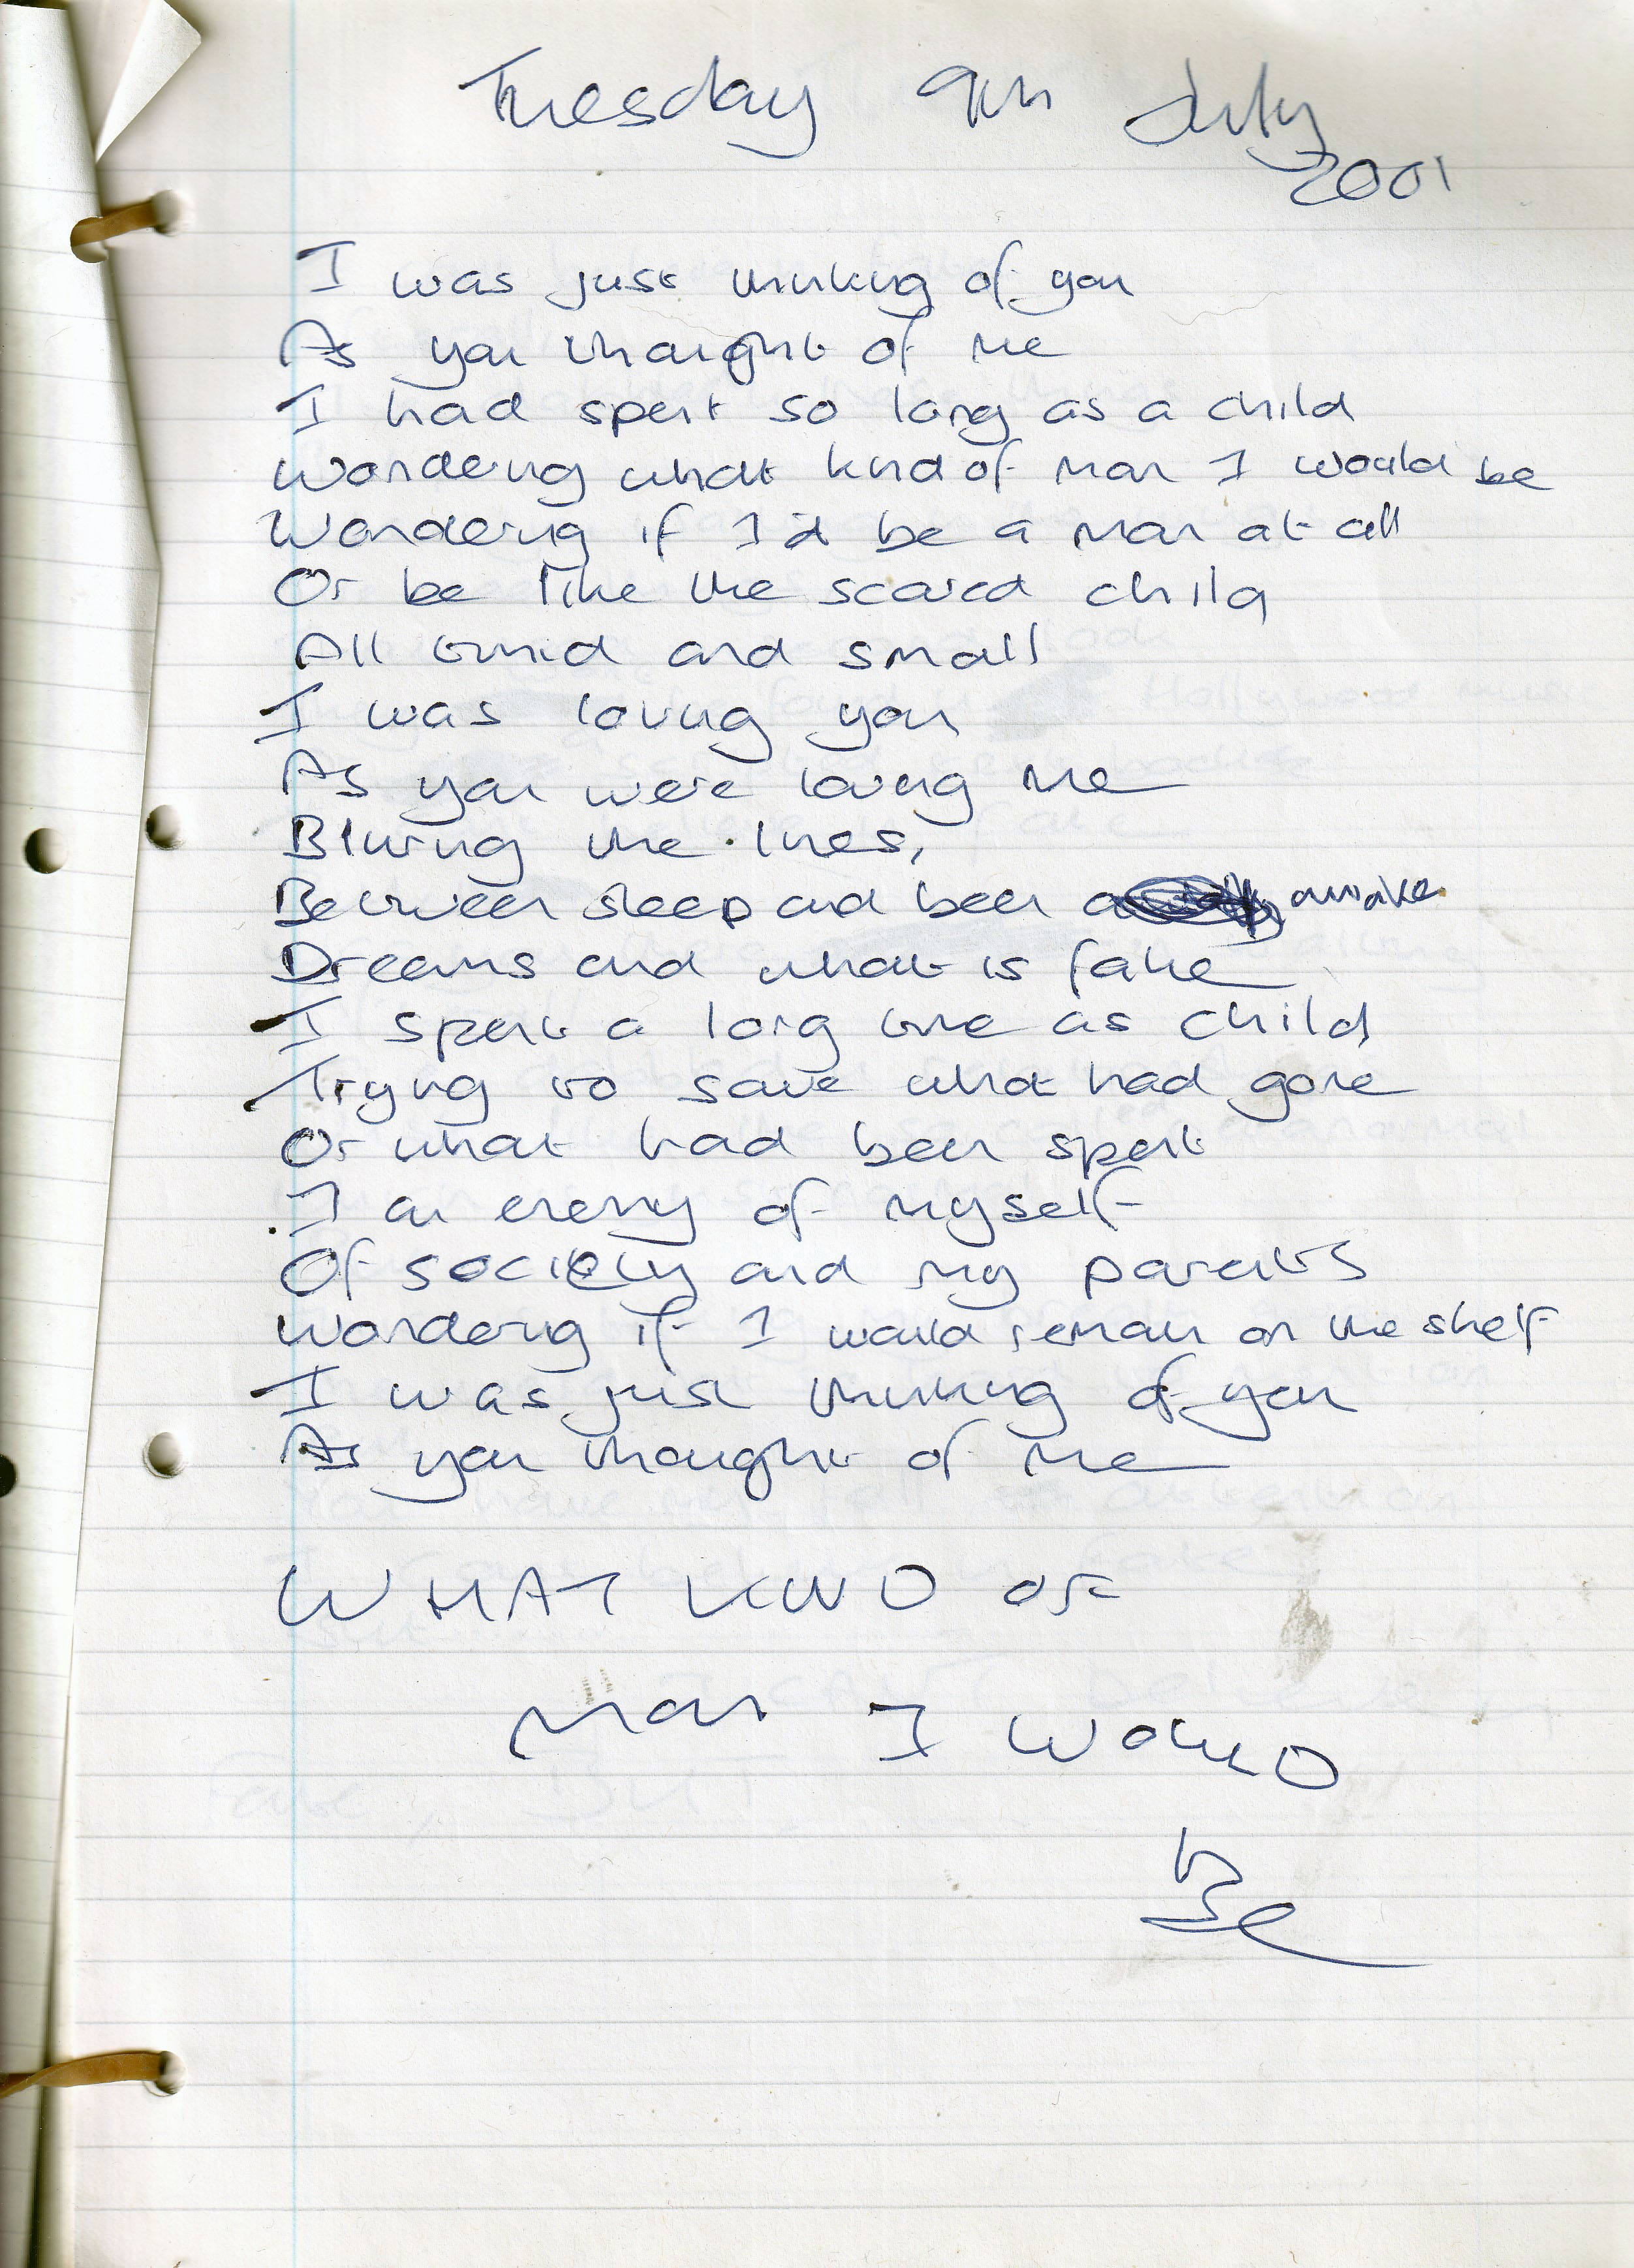 Tuesday 9th July
2001
I was just thinking of you
As you thought of me
I had spent so long as a child
Wondering what kind of man I would be
Wondering if I'd be a man at all
Or be like the scared child
All timid and small
I was loving you
As you were loving me
Bluring the lines,
Between sleep and been awake
Dreams and what is fake
I spent a long time as child
Trying to save what had gone
Or what had been spent
I an enemy of myself
Of society and my parents
Wondering if I would remain on the shelf
I was just thinking of you
As you thought of me
WHAT KIND OF
Man I WOULD
Be